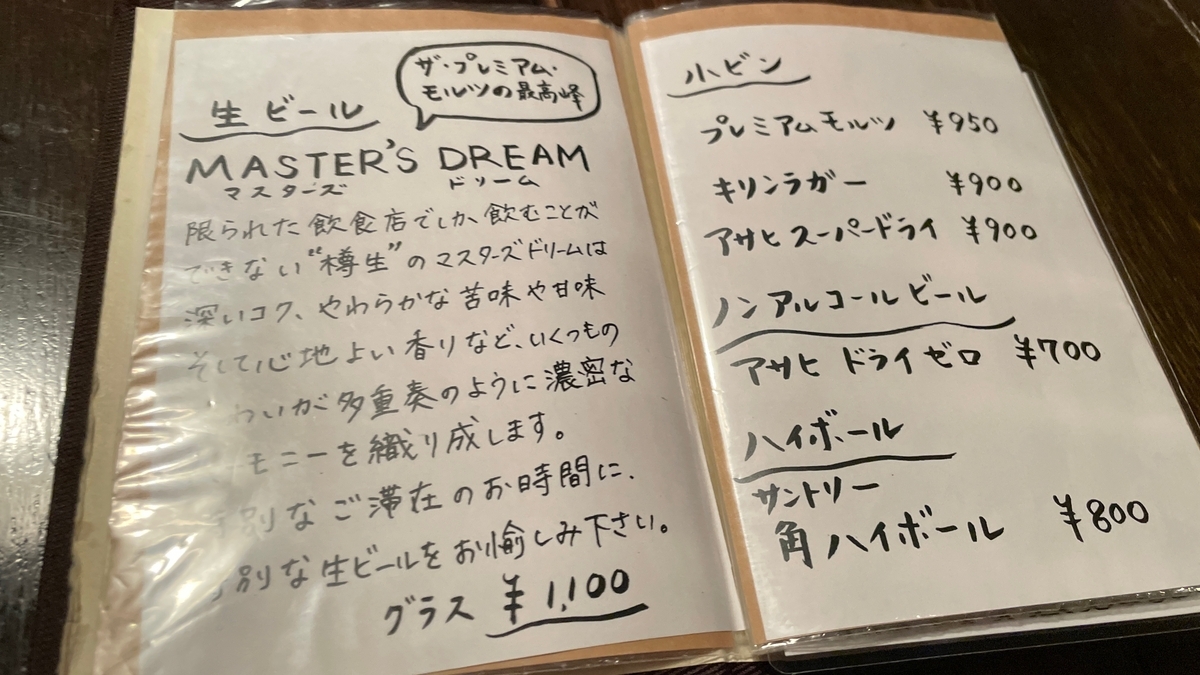 ザ・プレミアム・
モルツの最高峰
生ビール
MASTER'S DREAM
マスターズ ドリーム
限られた飲食店でしか飲むことが
できない"樽生"のマスターズドリームは
深いコク、やわらかな苦味や甘味
そして心地よい香りなど、いくつもの
わいが多重奏のように濃密な
モニーを織り成します。
別なご滞在のお時間に、
別な生ビールをお愉しみ下さい。
グラス ¥1,100
小ビン
プレミアムモルツ ¥950
キリンラガー ¥900
アサヒスーパードライ ¥900
ノンアルコールビール
アサヒ ドライゼロ ¥700
ハイボール
サントリー
角ハイボール ¥800